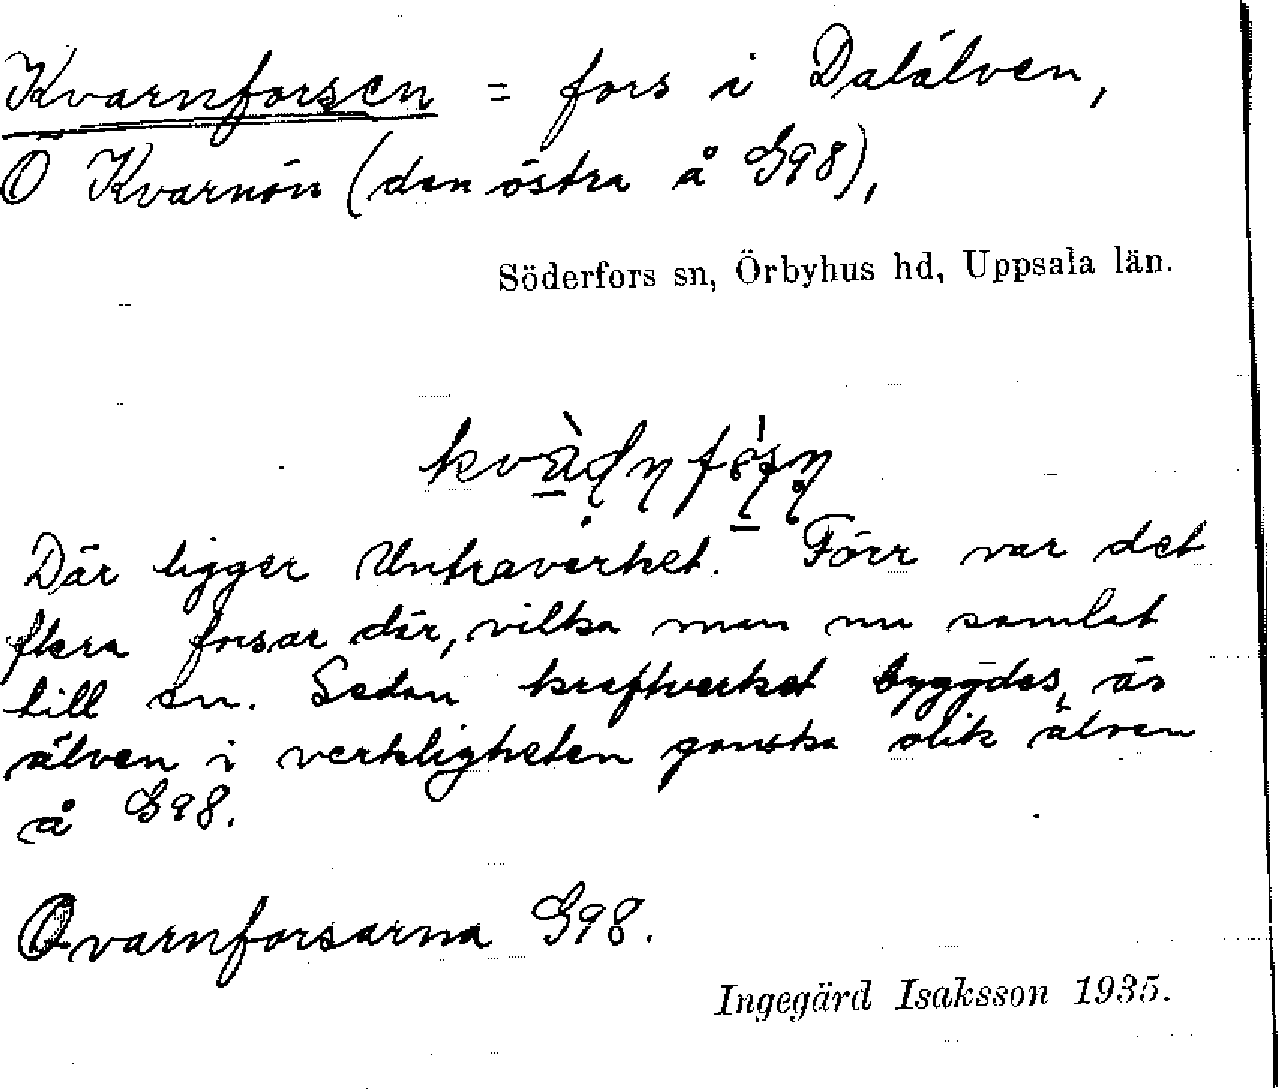 Kvarnforsen = fors i Dalälven,
Ö Kvarnön (den östra å G98),
Söderfors sn, Örbyhus hd, Uppsala län.
Där ligger Untraverket. Förr var det
flera forsar där, vilka man nu samlat
till en. Sedan kraftverket byggdes, är
älven i verkligheten ganska olik älven
å G98.
Qvarnforsarna G98.
Ingegärd Isaksson 1935.